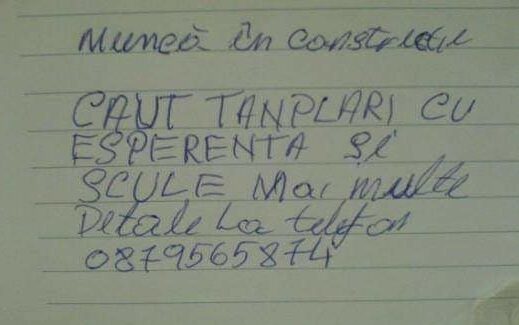 Muncă în construcție
CAUT TANPLARI CU
ESPERENTA și
SCULE Mai multe
Detale La telefon
0879565874